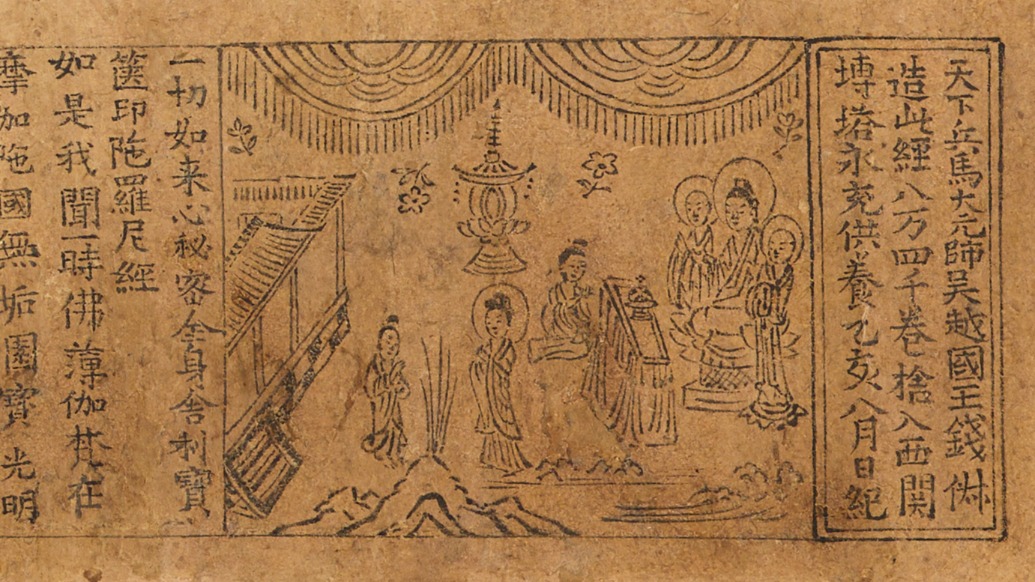 天下兵馬大元帥吳越國王錢俶
造此經八万四千卷捨入西關
塼塔永充供養乙亥八月日紀
一切如来心秘密全身舎利寶
篋印陁羅尼經
如是我聞一時佛薄伽梵在
摩伽陁國無垢園寶光明